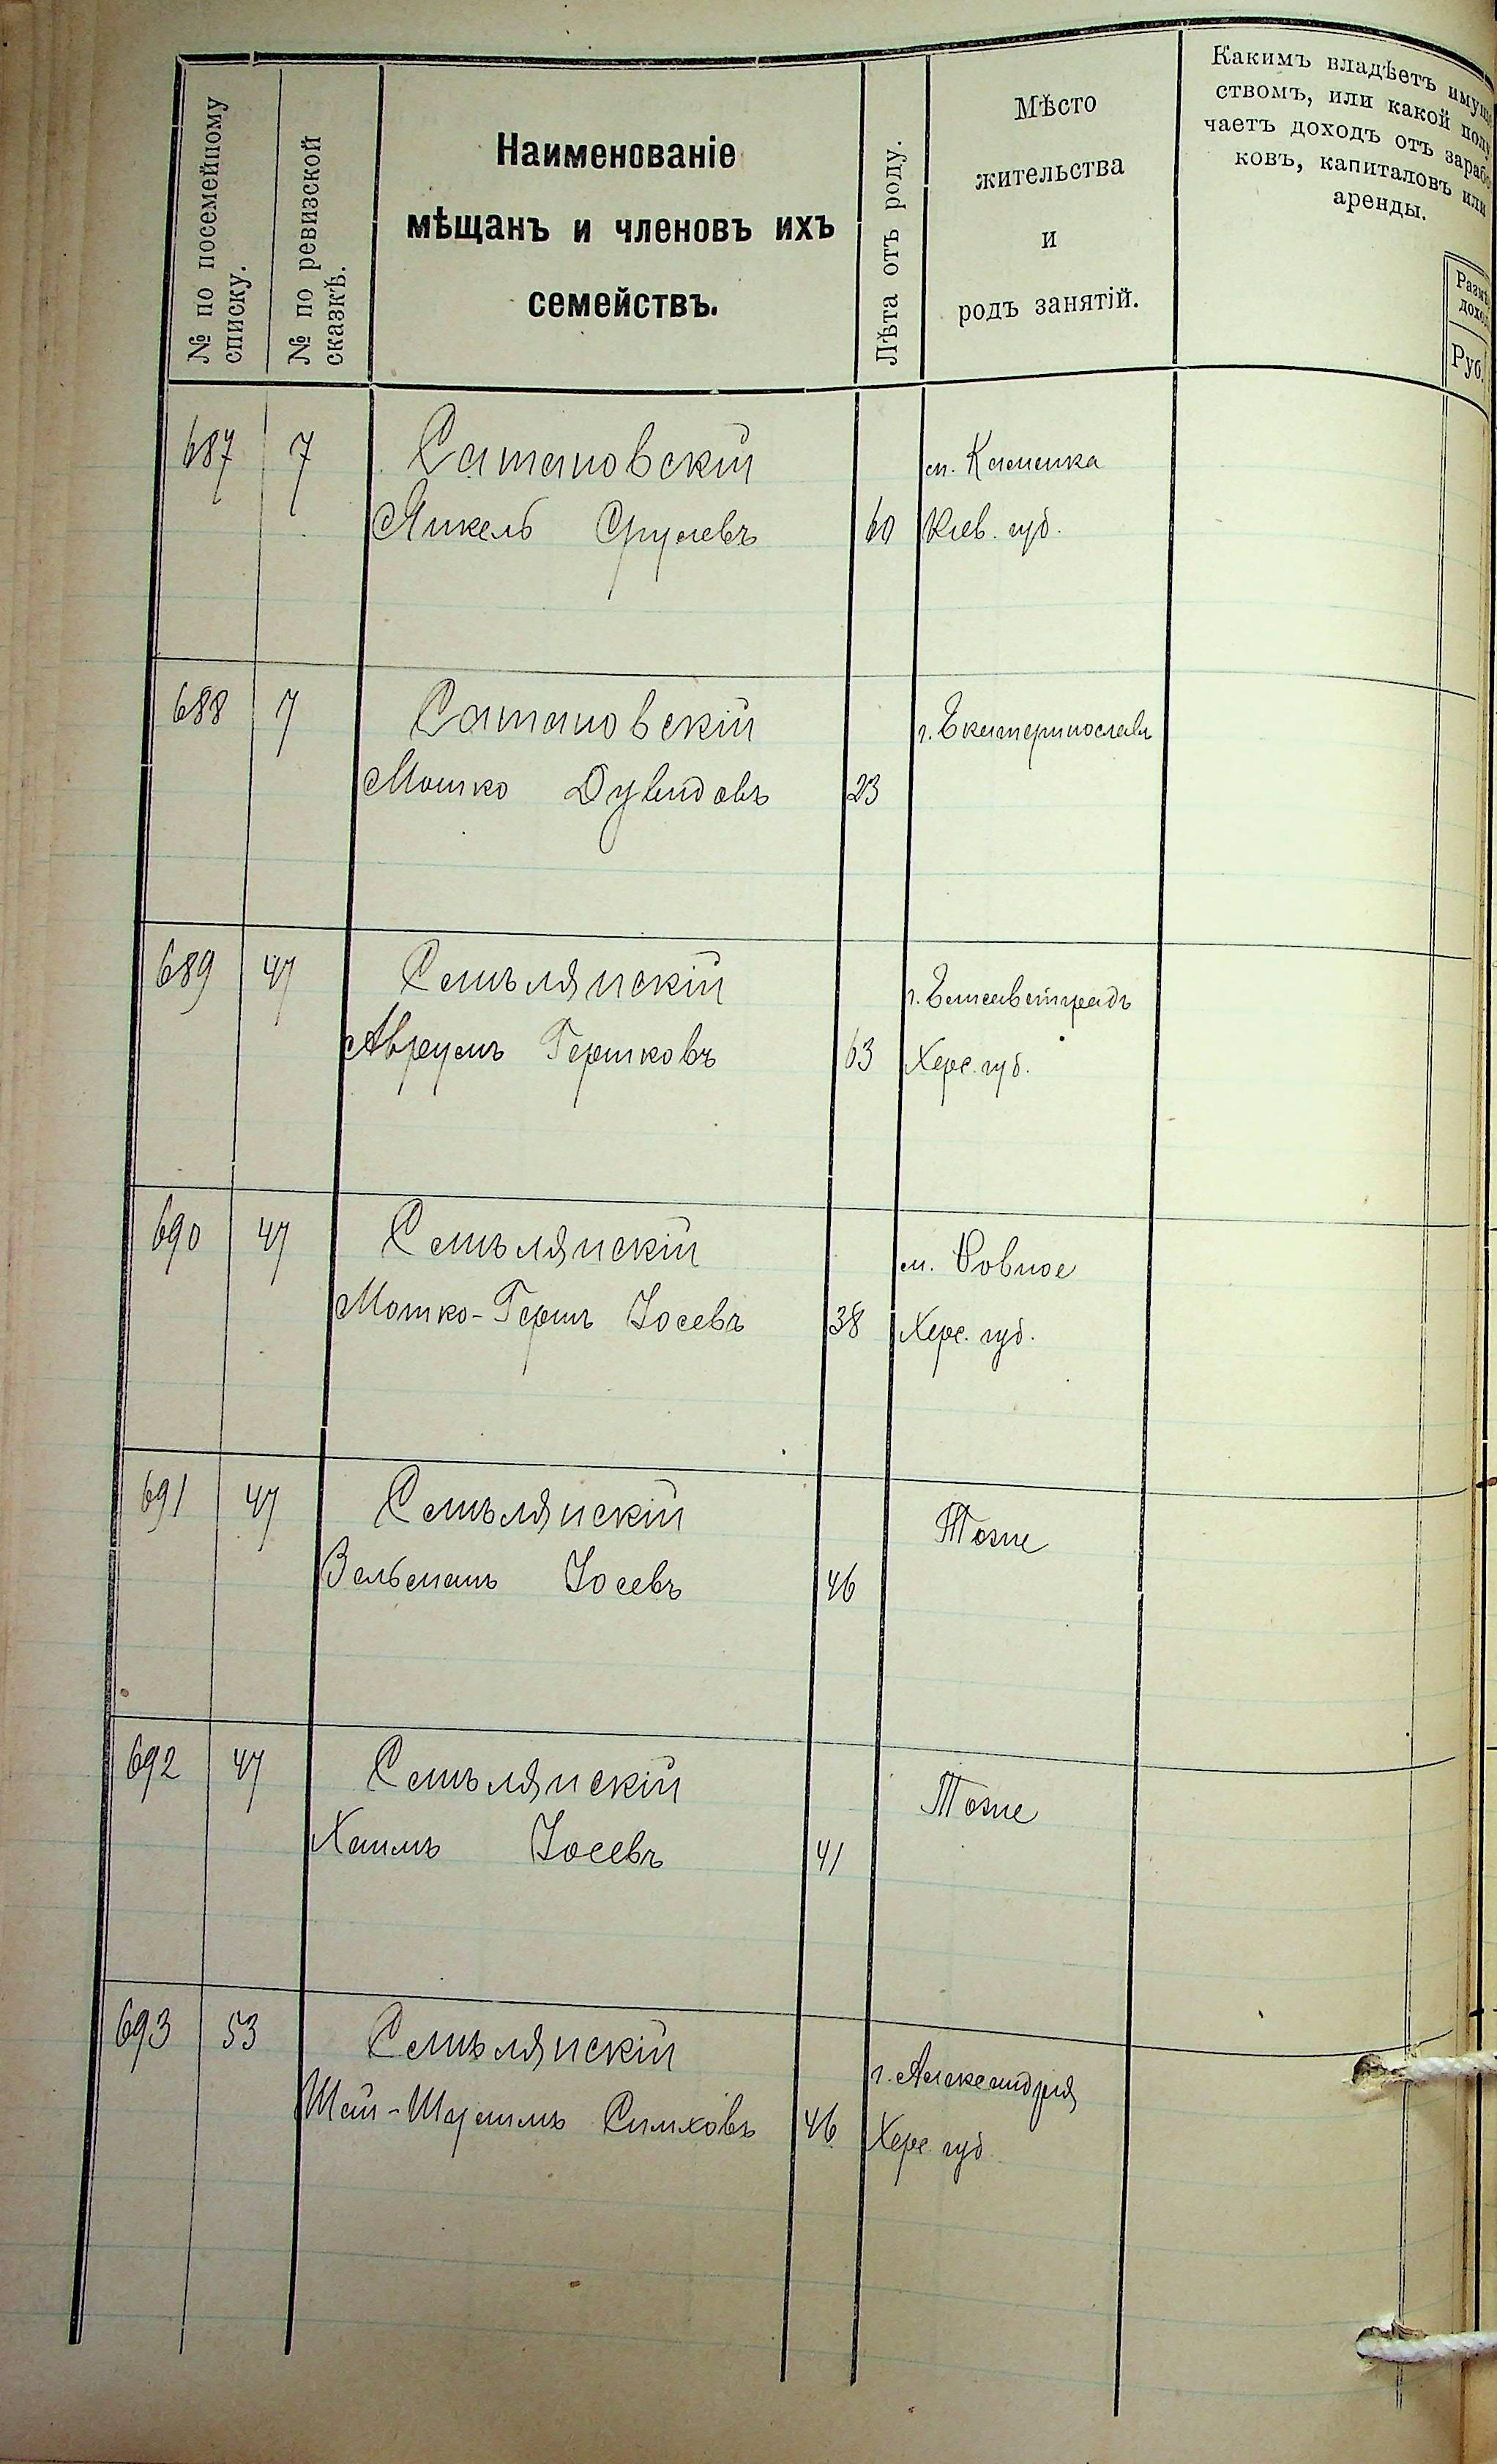 № по посемейному
списку.
№ по ревизской
сказкѣ.
Наименованіе
мѣщанъ и членовъ ихъ
семействъ.
Лѣта отъ роду.
Мѣсто
жительства
и
родъ занятій.
Какимъ владѣетъ имуще
ствомъ, или какой полу
чаетъ доходъ отъ зарабо
ковъ, капиталовъ или
аренды.
Размѣ
доход
Руб.
687 7 Сатановскій м. Каменка
Янкель Срулевъ 60 Кіев. губ.
688 7 Сатановскій г. Екатеринославъ
Мошко Дувидовъ 23
689 47 Смѣлянскій г. Елисаветградъ
Аврумъ Гершковъ 63 Херс. губ.
690 47 Смѣлянскій м. Ровное
Мошко-Гершъ Іосевъ 38 Херс. губ.
691 47 Смѣлянскій Тоже
Зельманъ Іосевъ 46
692 47 Смѣлянскій Тоже
Хаимъ Іосевъ 41
693 53 Смѣлянскій г. Александрія
Шай- Симховъ 46 Херс. губ.